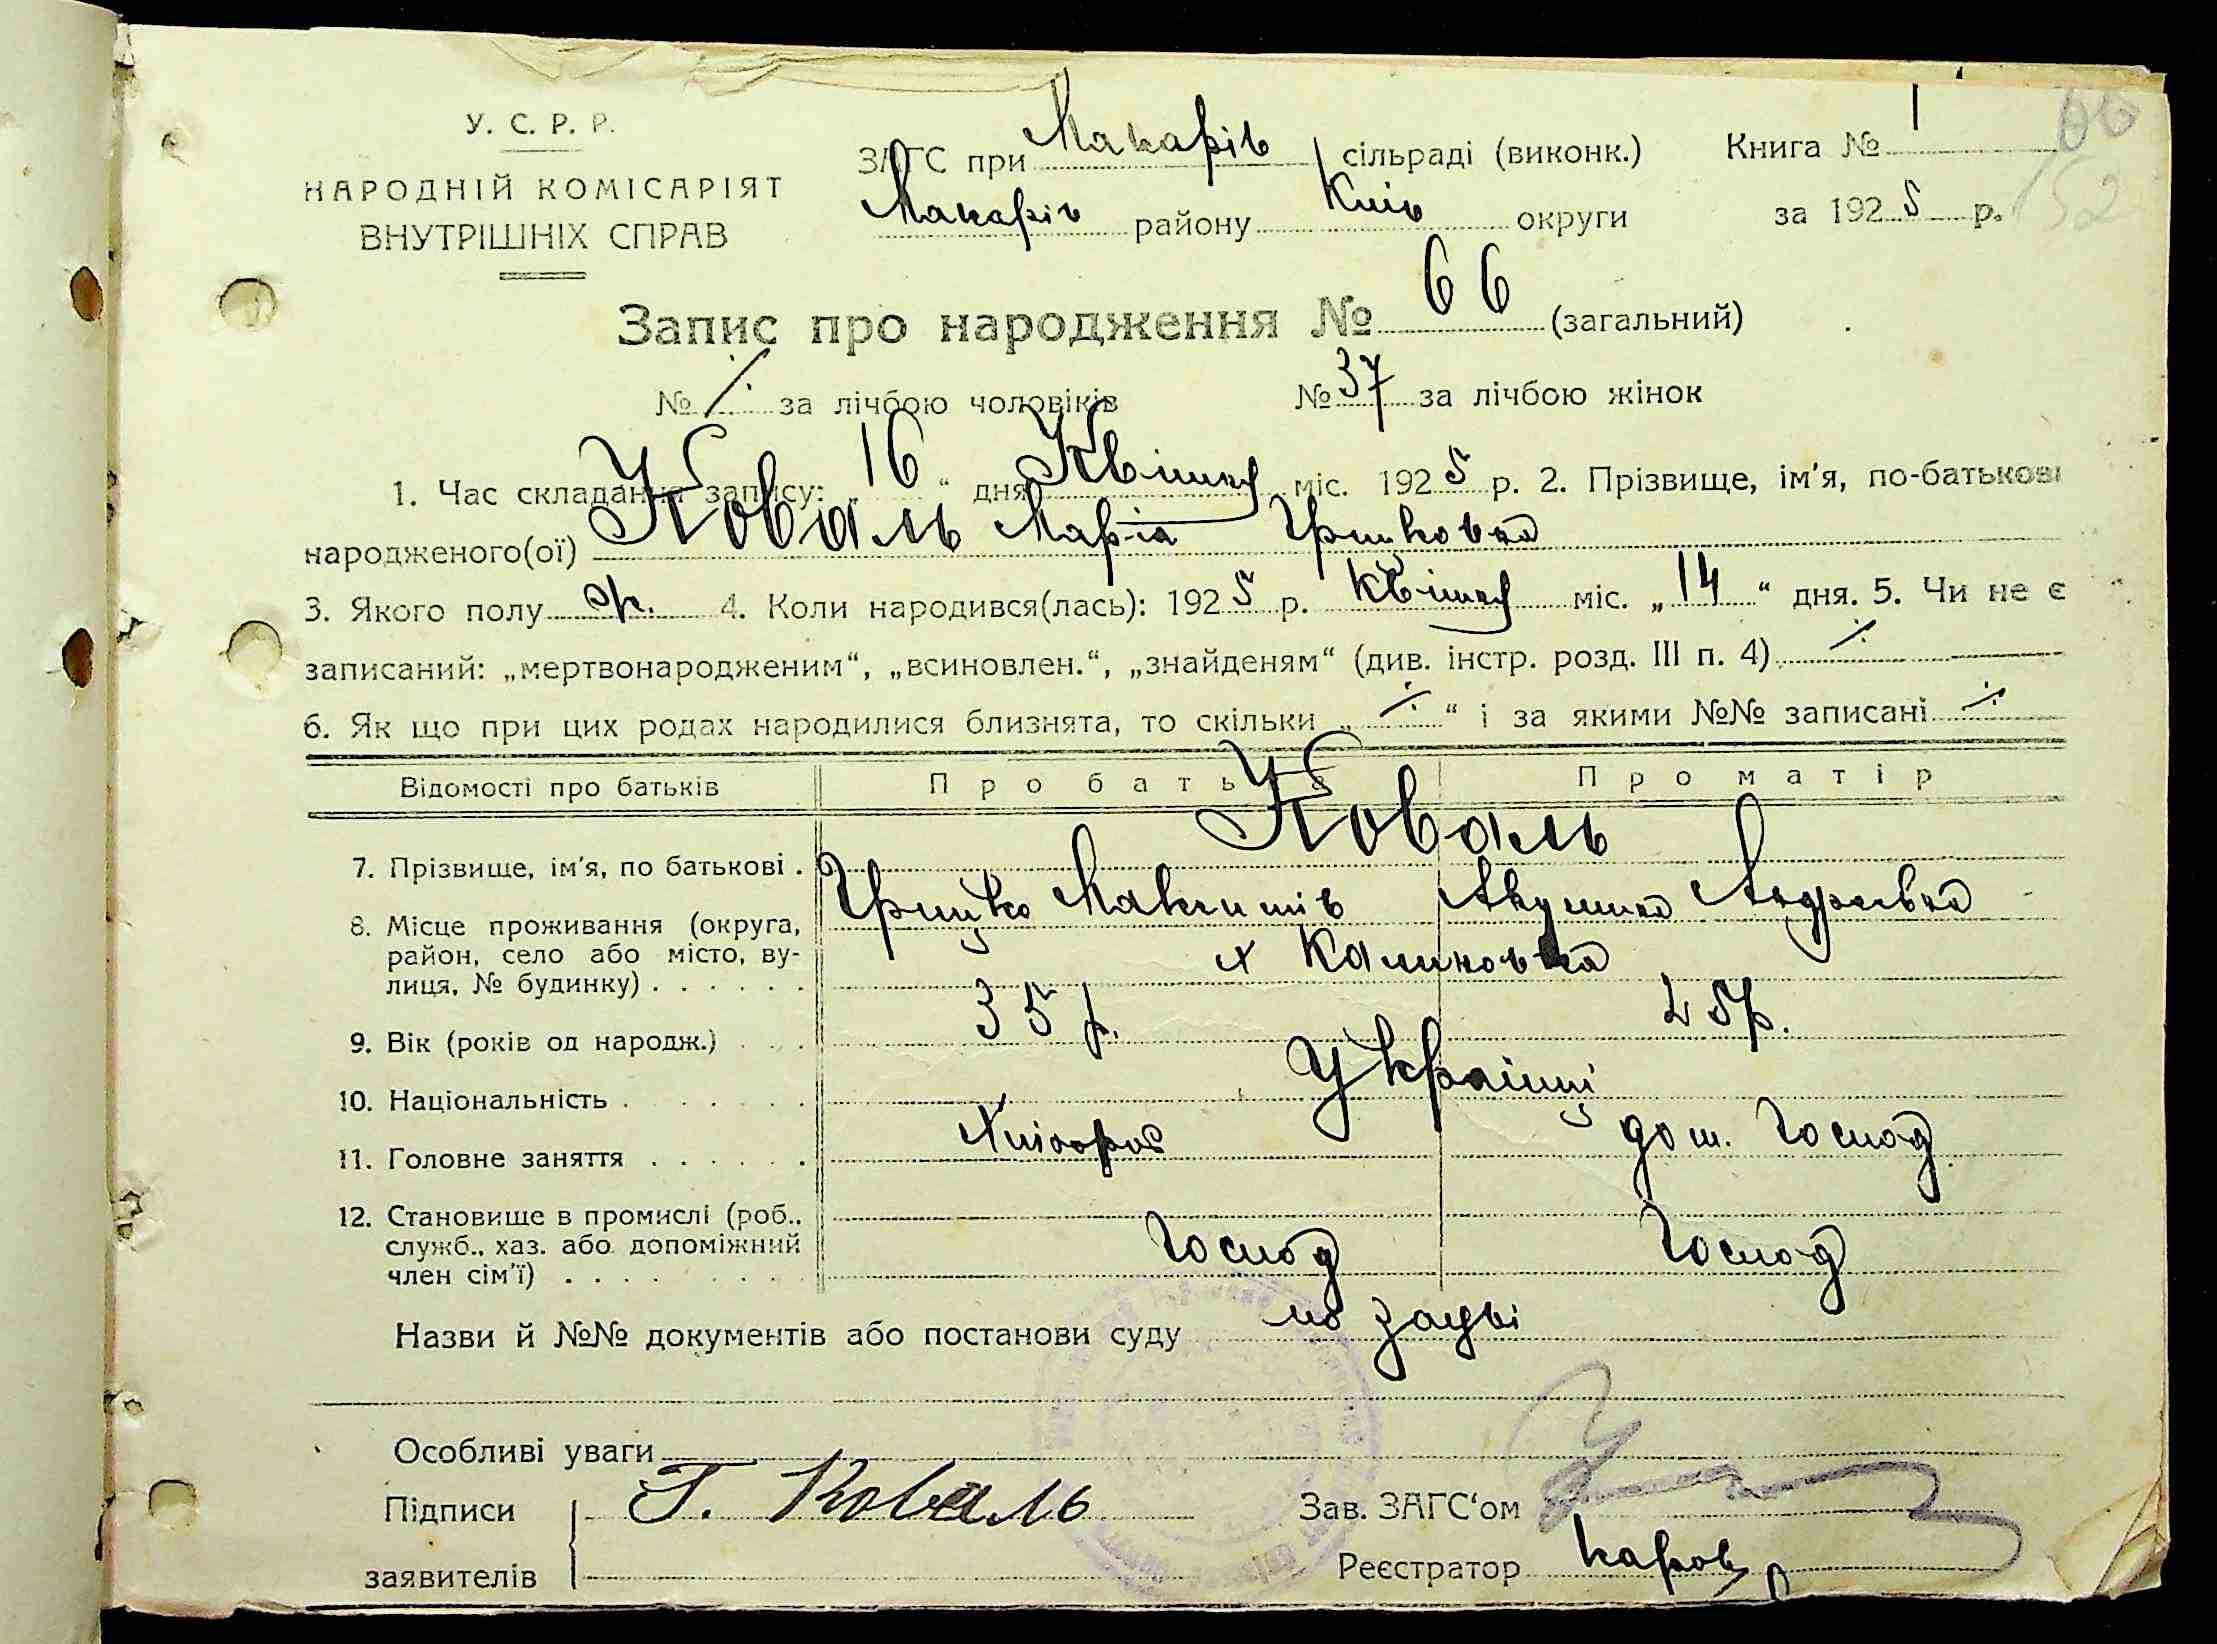 У. С. Р. Р.
НАРОДНІЙ КОМІСАРІЯТ
ВНУТРІШНІХ СПРАВ
ЗАГС при Макарів сільраді (виконк.) Книга № 1
66
Макарів району Київ округи за 1925 р.
52
Запис про народження № 66 (загальний)
№ ⁒ за лічбою чоловіків № 37 за лічбою жінок
1. Час складання запису: „ 16 “ дня Квітня міс. 1925 р. 2. Прізвище, ім'я, по-батькові
народженого(ої) Коваль Марія Грицковна
3. Якого полу ж. 4. Коли народився(лась): 1925 р. квітня міс. „ 14 “ дня. 5. Чи не є
записаний: „мертвонародженим“, „всиновлен.“, „знайденям“ (див. інстр. розд. III п. 4) ⁒
6. Як що при цих родах народилися близнята, то скільки „ ⁒ “ і за якими №№ записані ⁒
Відомості про батьків Про батька Про матір
Коваль
7. Прізвище, ім'я, по батькові . Грицко Максимів Акулина Андреівна
8. Місце проживання (округа,
район, село або місто, ву-
лиця, № будинку) . . . . . . х Калиновка
9. Вік (років од народж.) . . . 35 р. 25 р.
10. Національність . . . . . . Українці
11. Головне заняття . . . . . . Хлібороб дом. Господ
12. Становище в промислі (роб.,
служб., хаз. або допоміжний
член сім'ї) . . . . . . . . Господ Господ
Назви й №№ документів або постанови суду по заяві
Особливі уваги
Підписи Г. Коваль Зав. ЗАГС'ом
заявителів Реєстратор